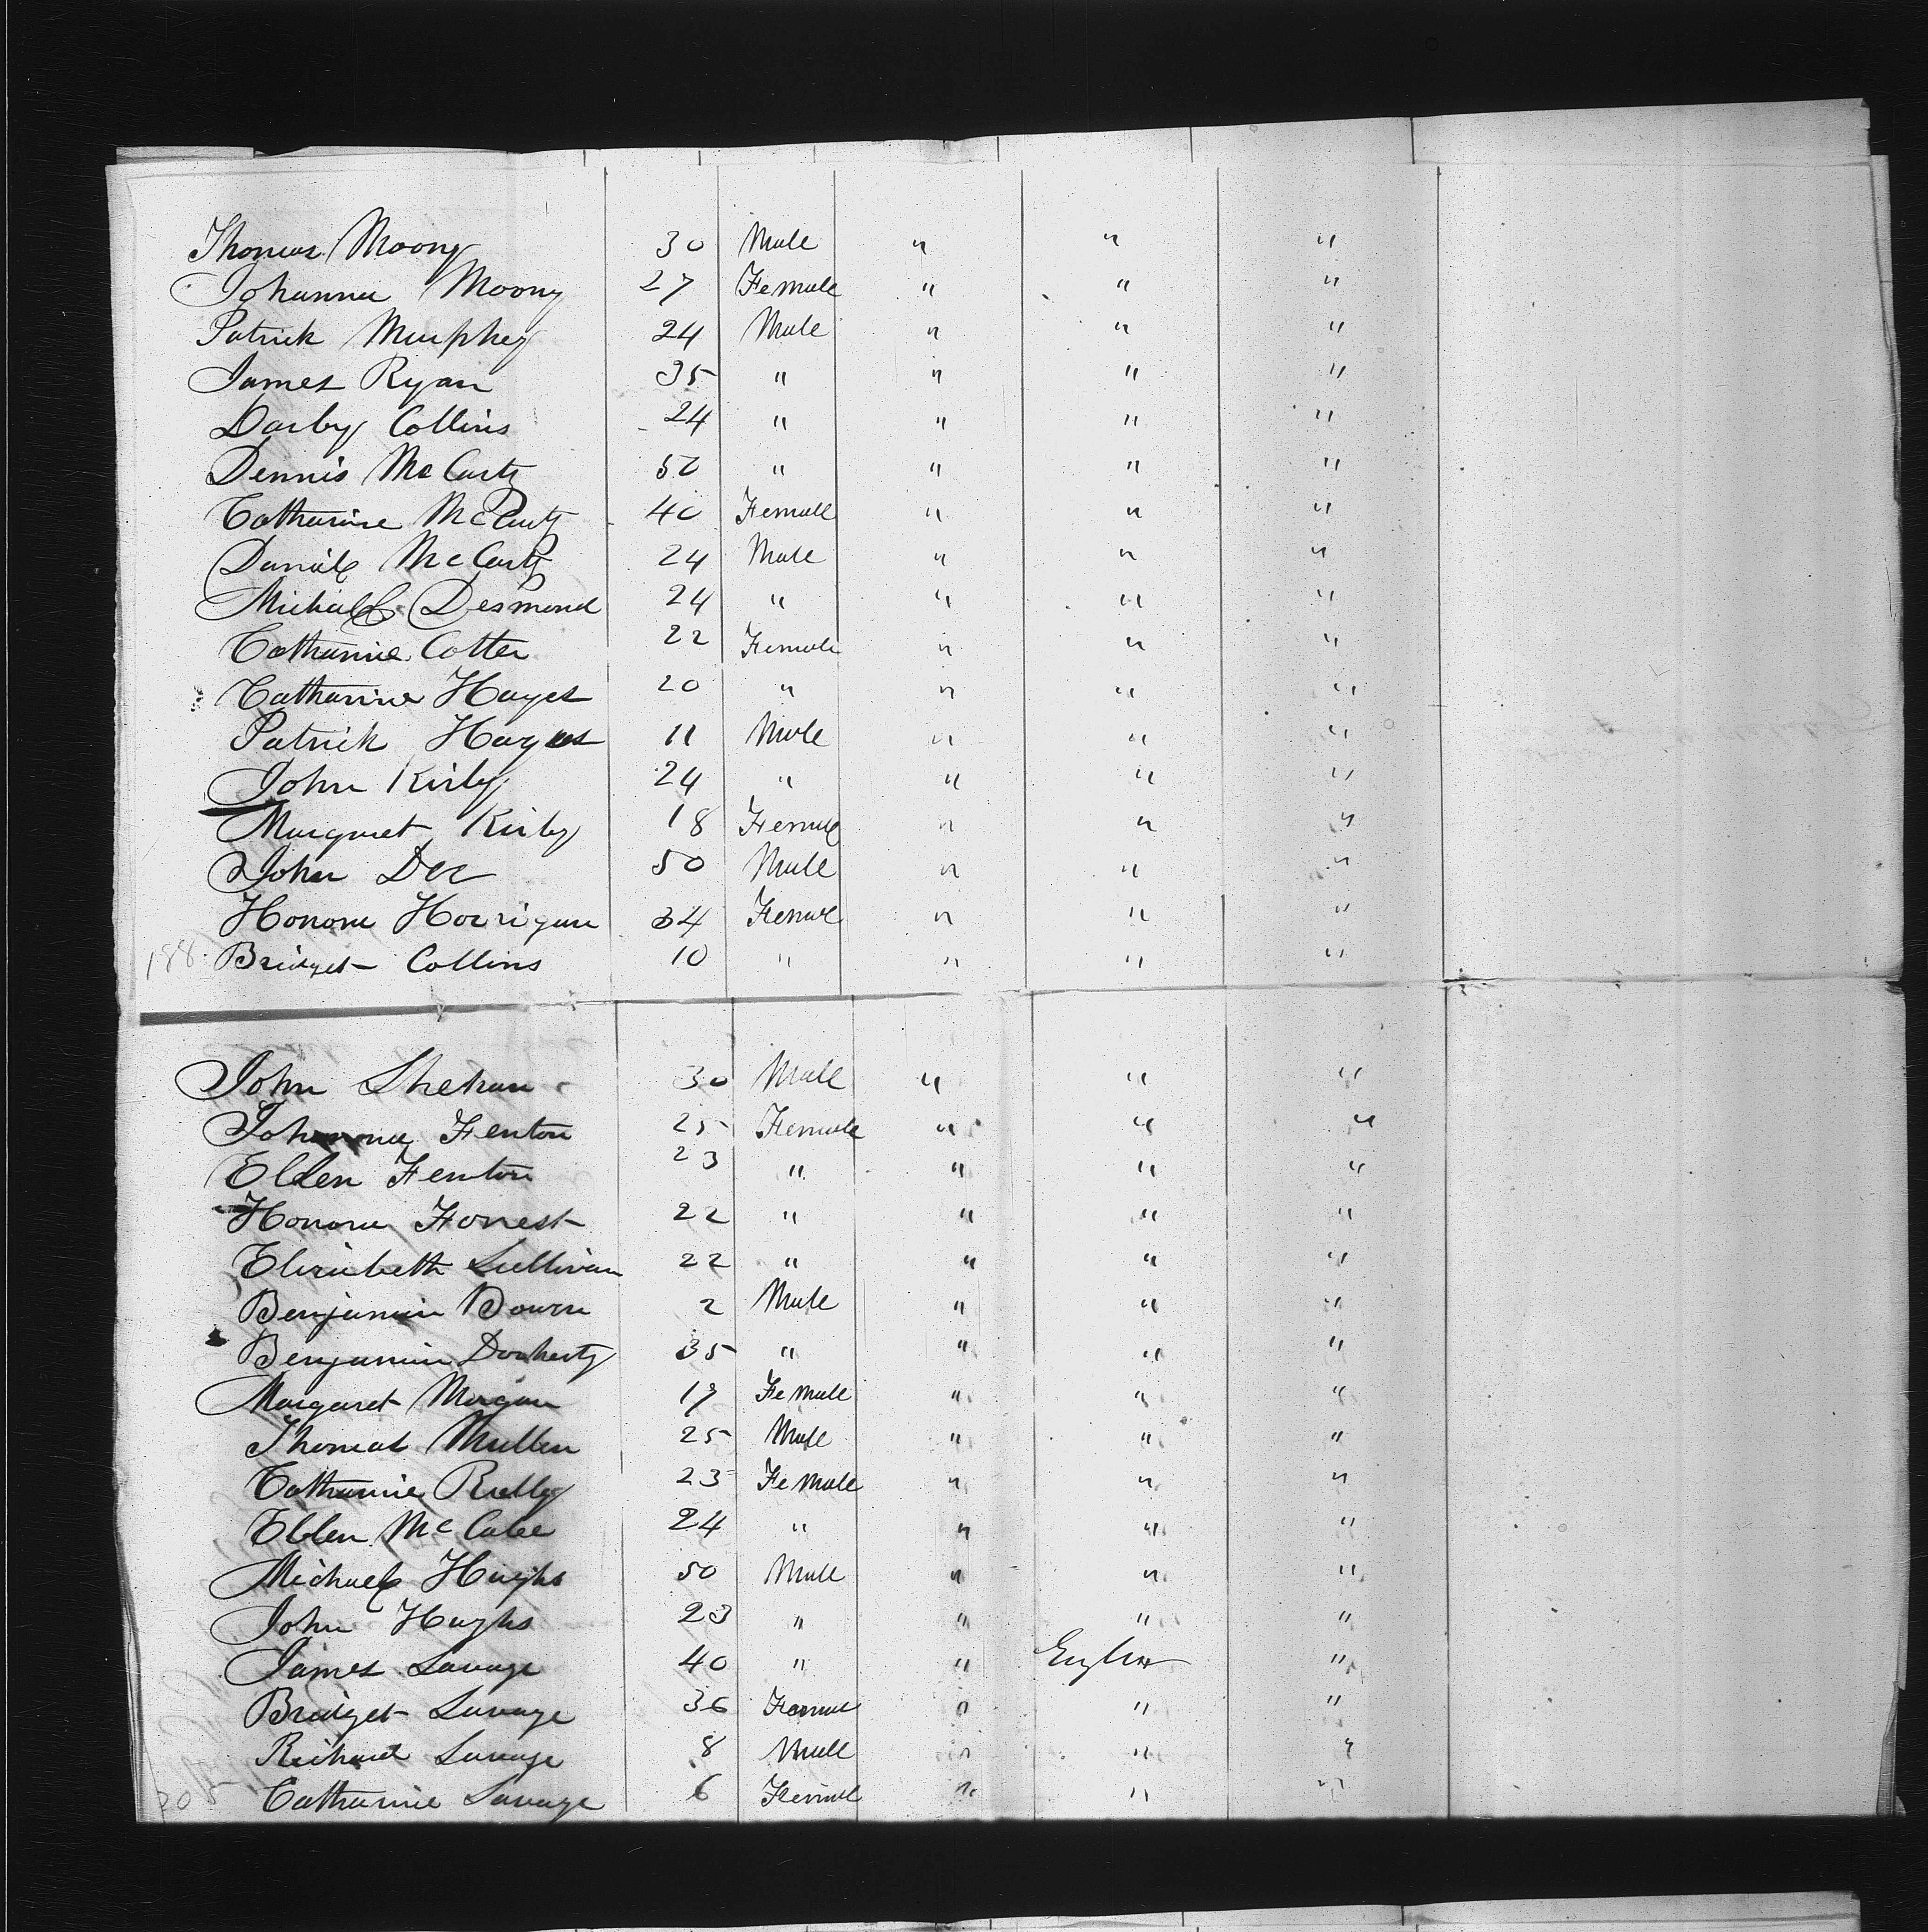 Thomas Moony 30 Male " " "
Johanna Moony 27 Female " " "
Patrick Murphey 24 Male " " "
James Ryan 35 " " " "
Darby Collins 24 " " " "
Dennis McCarty 50 " " " "
Catharine McCarty 40 Female " " "
Daniel McCarty 24 Male " " "
Michall Desmond 24 " " " "
Catharine Cotter 22 Female " " "
Catharine Hayes 20 " " " "
Patrick Hayes 11 Male " " "
John Kirby 24 " " " "
Margaret Kirby 18 Female " " "
John 50 Male " " "
Honora Horrigan 34 Female " " "
188 Bridget Collins 10 " " " "
John Shehan 30 Male " " "
Johanna Fenton 25 Female " " "
Ellen Fenton 23 " " " "
Honora Forrest 22 " " " "
Elizabeth Sullivan 22 " " " "
Benjamin Bowen 2 Male " " "
Benjamin Docherty 35 " " " "
Margaret Morgan 19 Female " " "
Thomas Mullen 25 Male " " "
Catharine Reilly 23 Female " " "
Ellen McCabe 24 " " " "
Michael Hughs 50 Male " " "
John Hughs 23 " " " "
James Savage 40 " " "
Bridget Savage 36 Female " " "
Richard Savage 8 Male " " "
205 Catharine Savage 6 Female " " "